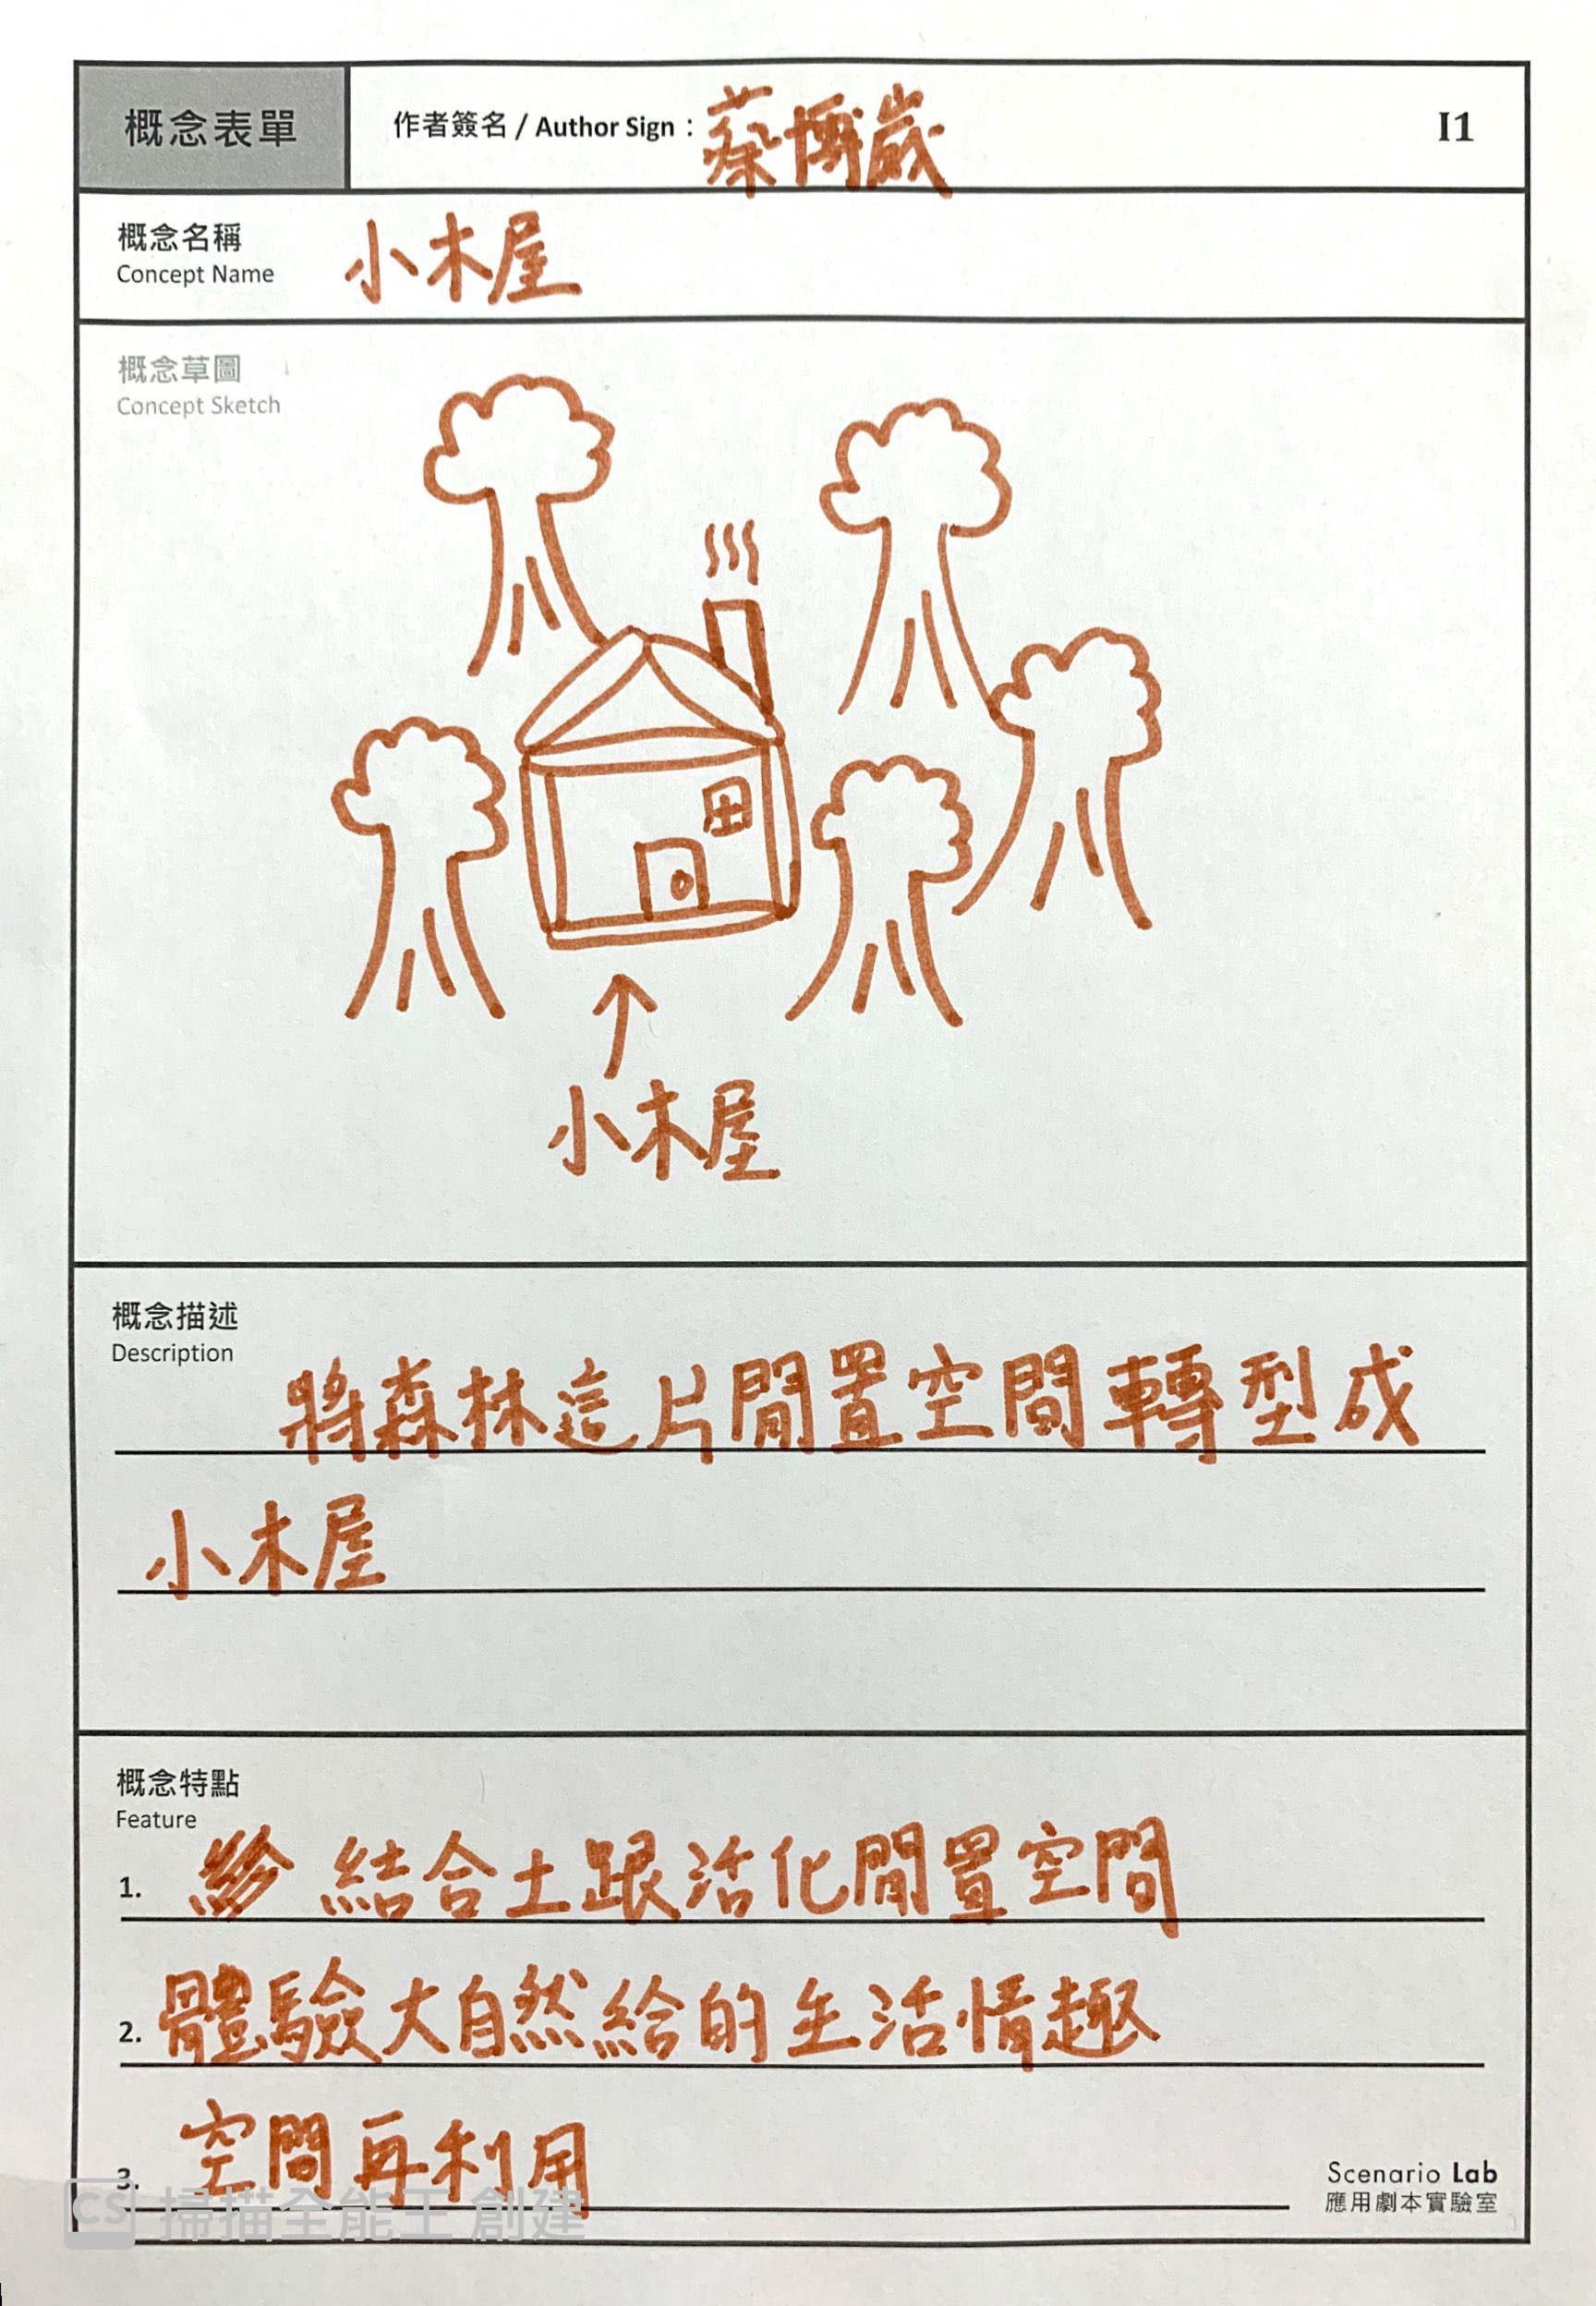 概念表單
作者簽名 / Author Sign：蔡博崴
I1
概念名稱
Concept Name
小木屋
概念草圖
Concept Sketch
小木屋
概念描述
Description
將森林這片閒置空間轉型成
小木屋
概念特點
Feature
1. 結合土跟活化閒置空間
2. 體驗大自然給的生活情趣
3. 空間再利用
Scenario Lab
應用劇本實驗室
CS 掃描全能王 創建